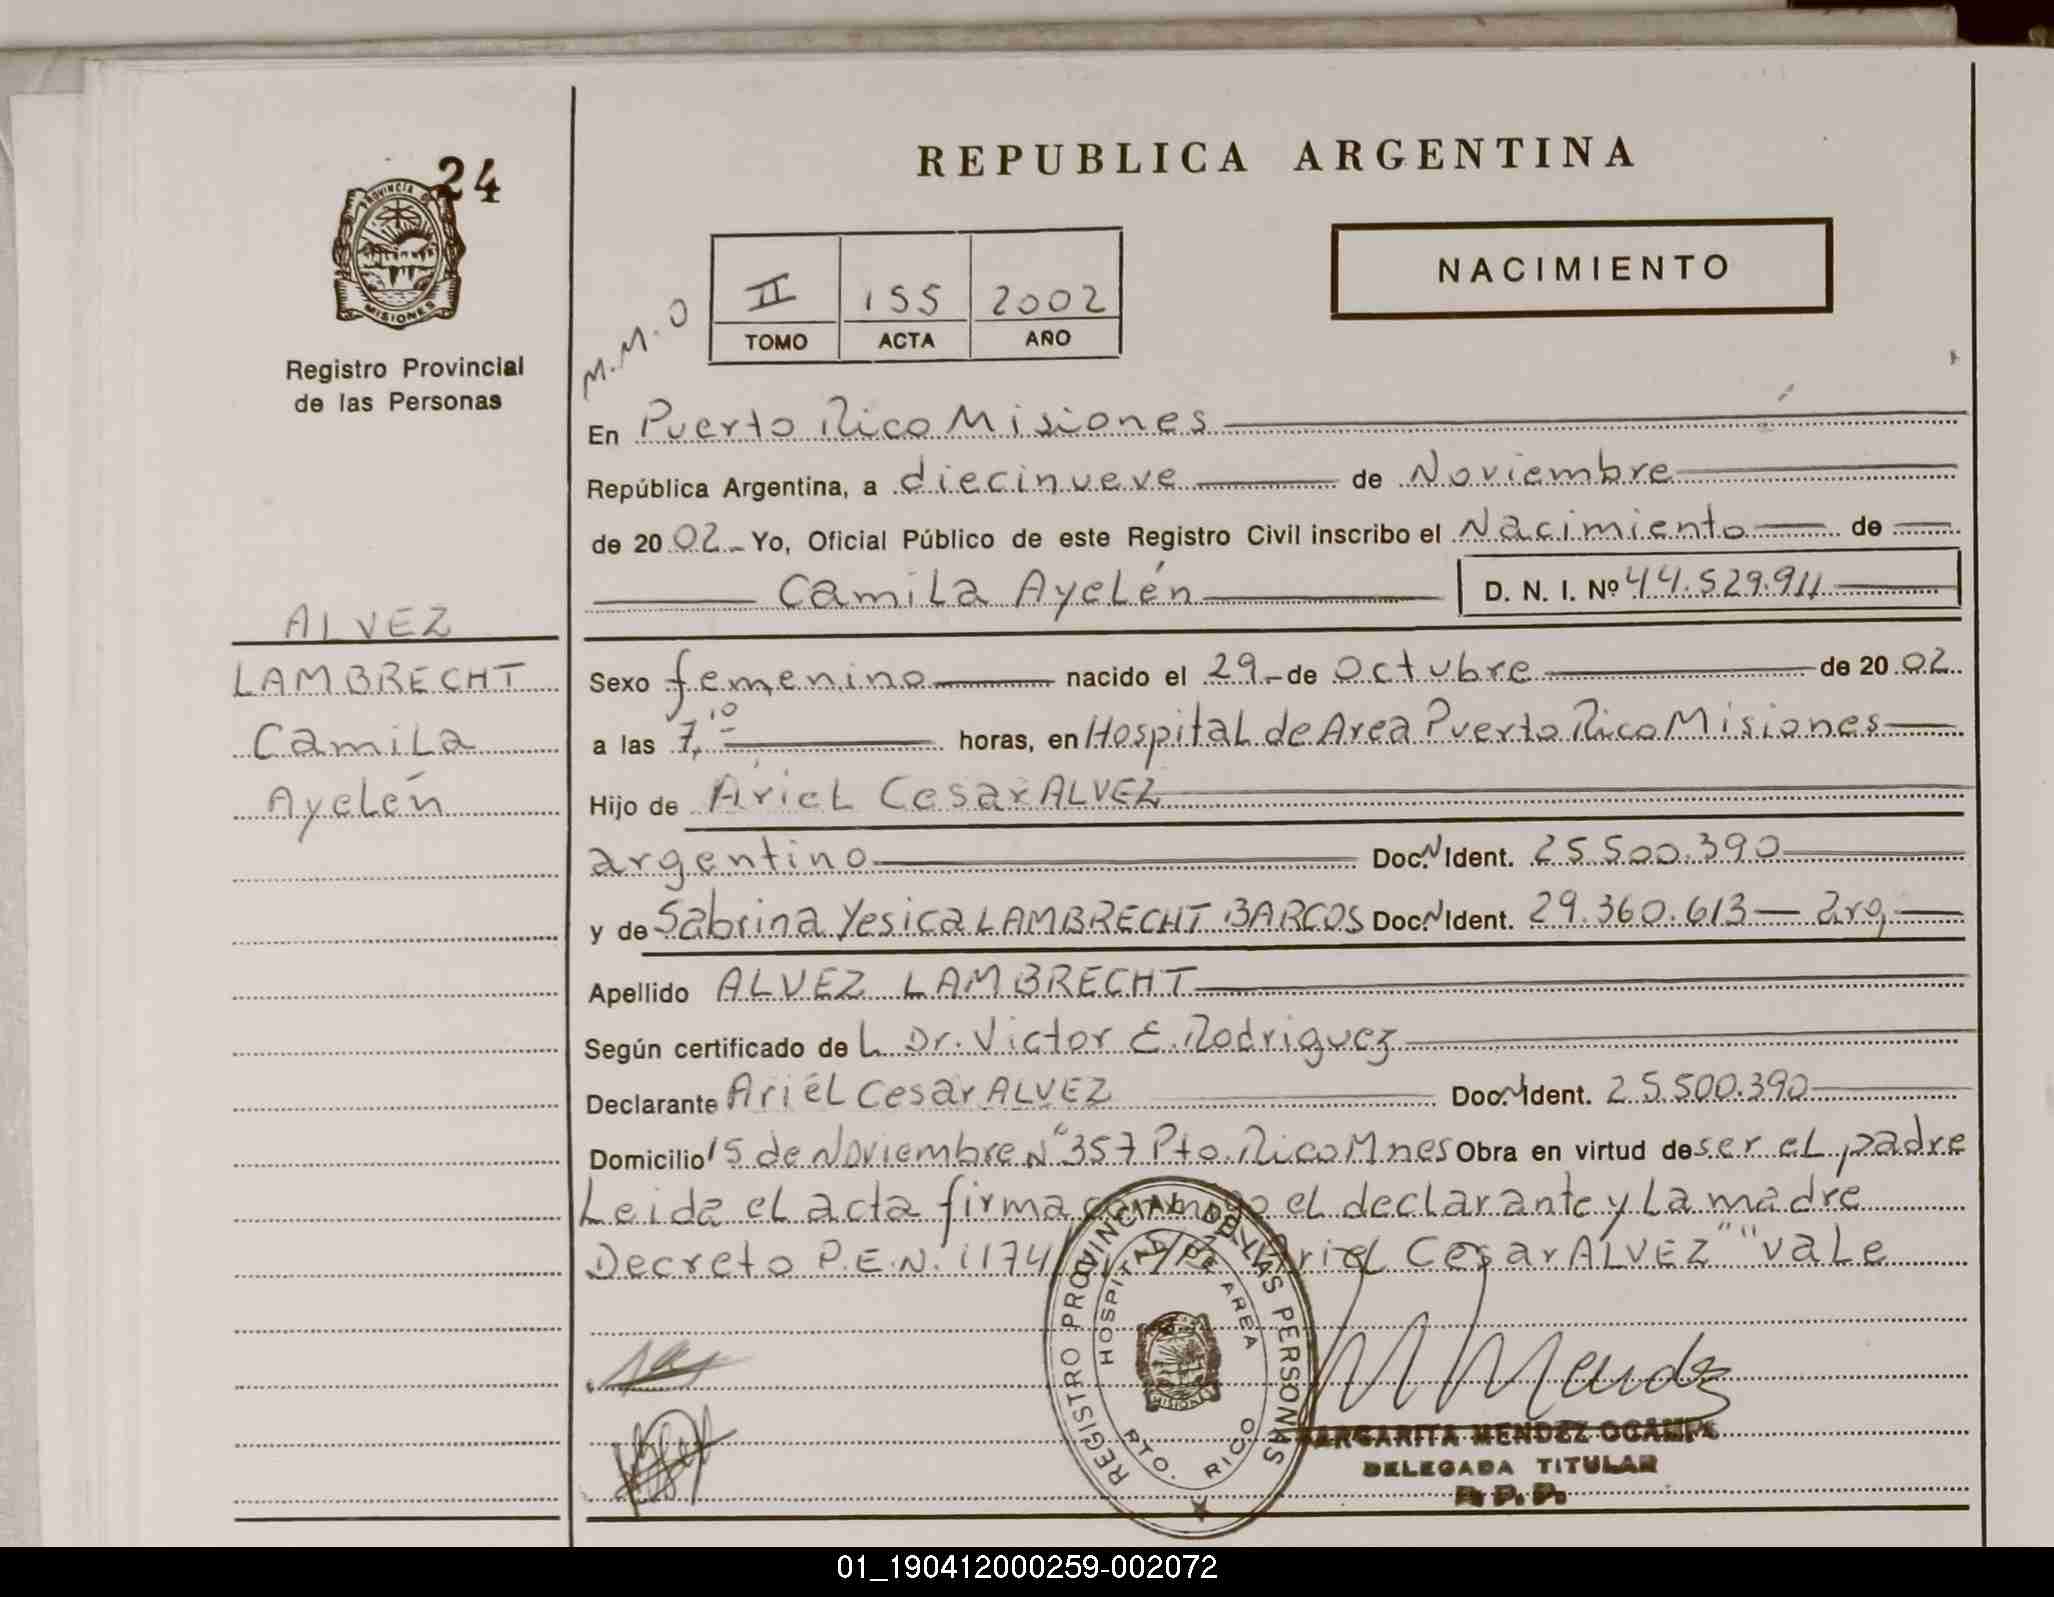 24
PROVINCIA DE
MISIONES
Registro Provincial
de las Personas
REPUBLICA ARGENTINA
NACIMIENTO
M.M.O
II 155 2002
TOMO ACTA AÑO
En Puerto Rico Misiones
República Argentina, a diecinueve de Noviembre
de 20 02 Yo, Oficial Público de este Registro Civil inscribo el Nacimiento de
Camila Ayelén D. N. I. Nº 44.529.911
ALVEZ
LAMBRECHT
Camila
Ayelén
Sexo femenino nacido el 29 de Octubre de 20 02
a las 7,10 horas, en Hospital de Area Puerto Rico Misiones
Hijo de Ariel Cesar ALVEZ
argentino Doc. N Ident. 25.500.390
y de Sabrina Yesica LAMBRECHT BARCOS Doc. N Ident. 29.360.613 Arg
Apellido ALVEZ LAMBRECHT
Según certificado de L Dr. Victor E. Rodriguez
Declarante Ariel Cesar ALVEZ Doc. N Ident. 25.500.390
Domicilio 15 de Noviembre Nº 357 Pto. Rico Mnes Obra en virtud de ser el padre
Leida el acta firma conmigo el declarante y La madre
Decreto P.E.N. 1174 Ariel Cesar ALVEZ" "vale
REGISTRO PROVINCIAL DE LAS PERSONAS
HOSPITAL DE AREA
MISIONES
PTO. RICO
MARGARITA MENDEZ OCAMPO
DELEGADA TITULAR
R. P. P.
01_190412000259-002072